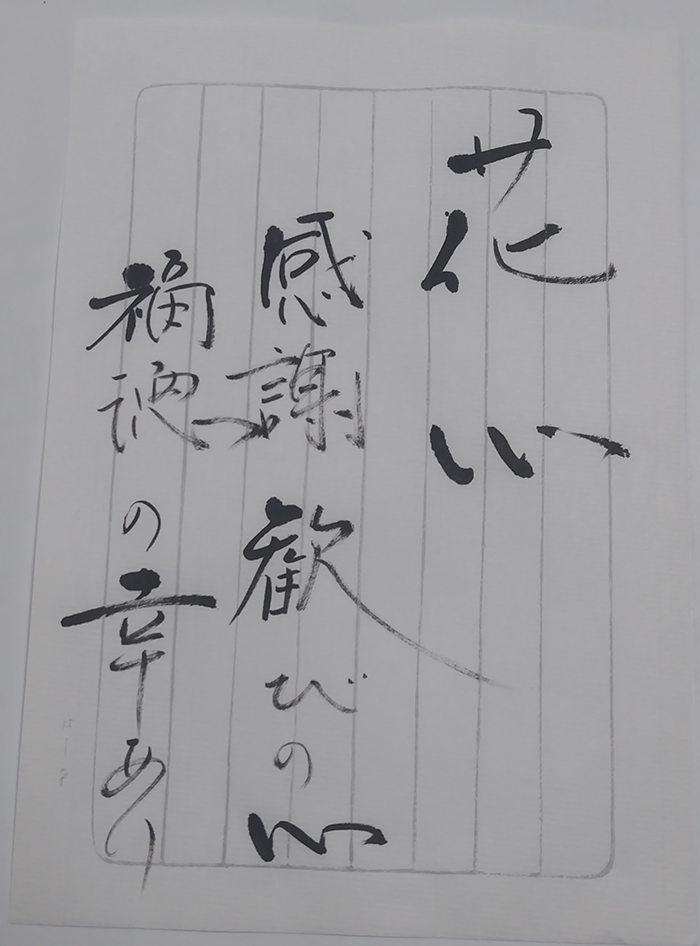 花心
感謝歓びの心
福徳の幸あり